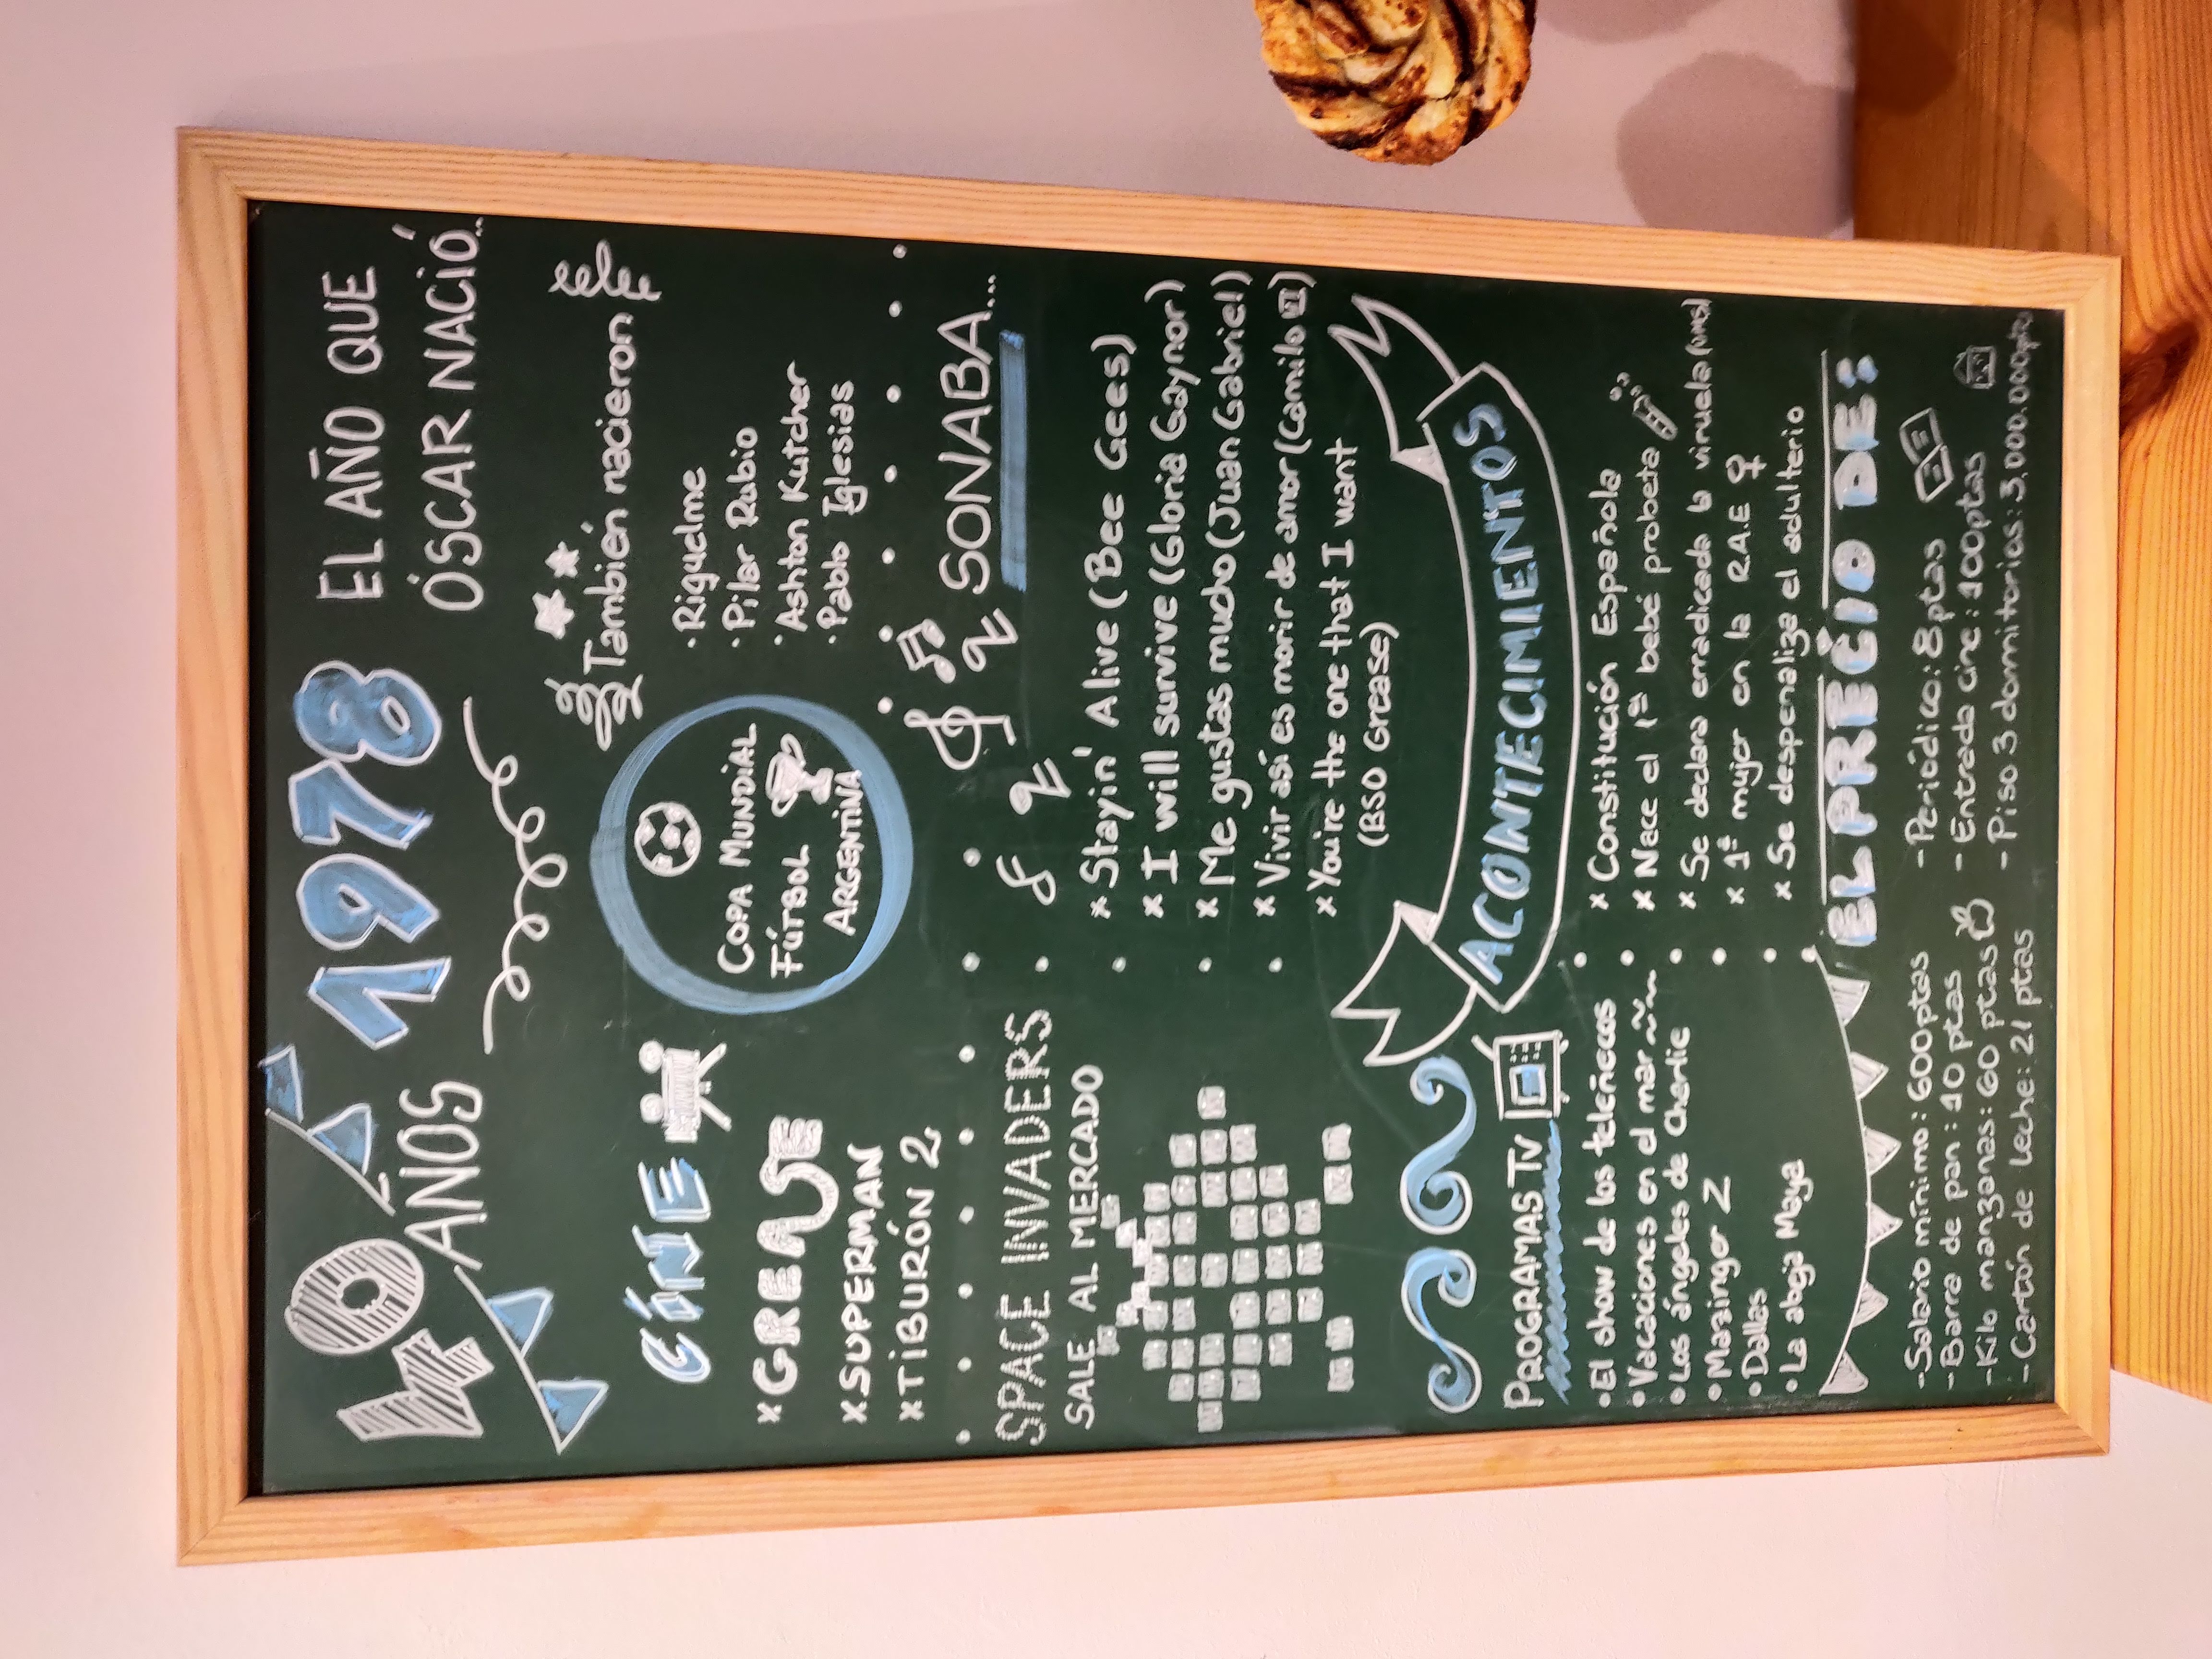 40 AÑOS
1978
EL AÑO QUE
ÓSCAR NACIÓ..
CINE
* GREASE
* SUPERMAN
* TIBURÓN 2
COPA MUNDIAL
FÚTBOL
ARGENTINA
También nacieron
· Riquelme
· Pilar Rubio
· Ashton Kutcher
· Pablo Iglesias
SPACE INVADERS
SALE AL MERCADO
SONABA...
* Stayin' Alive (Bee Gees)
* I will survive (Gloria Gaynor)
* Me gustas mucho (Juan Gabriel)
* Vivir así es morir de amor (Camilo VI)
* You're the one that I want
(BSO Grease)
PROGRAMAS TV
• El show de los teleñecos
• Vacaciones en el mar
• Los ángeles de Charlie
• Mazinger Z
• Dallas
• La abeja Maya
ACONTECIMIENTOS
x Constitución Española
x Nace el 1er bebé probeta
x Se declara erradicada la viruela (OMS)
x 1ª mujer en la R.A.E ♀
x Se despenaliza el adulterio
EL PRECIO DE:
- Salario mínimo: 600 ptas
- Barra de pan: 10 ptas
- Kilo manzanas: 60 ptas
- Cartón de leche: 21 ptas
- Periódico: 8 ptas
- Entrada cine: 100 ptas
- Piso 3 dormitorios: 3.000.000 ptas